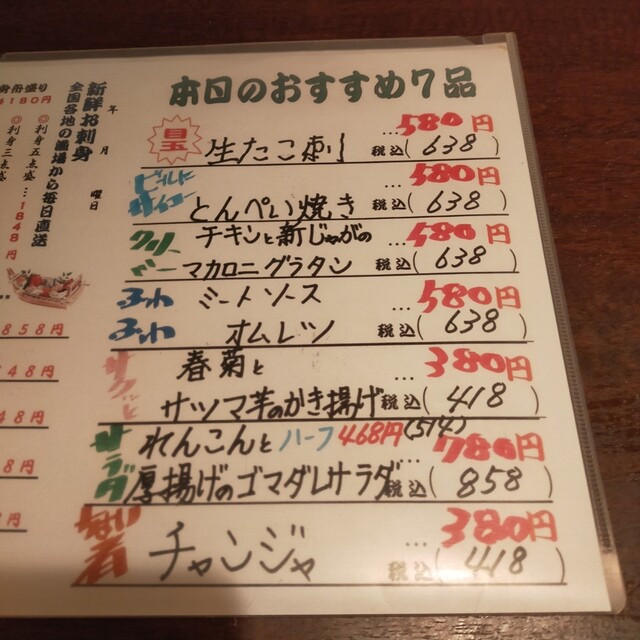 本日のおすすめ7品
目玉 生たこ刺 …580円
税込(638)
ビールに …580円
とんぺい焼き 税込(638)
クリーミー チキンと新じゃがの …580円
マカロニグラタン 税込(638)
ふわ ミートソース …580円
ふわ オムレツ 税込(638)
サクッと 春菊と …380円
サツマ芋のかき揚げ 税込(418)
サラダ れんこんと ハーフ468円(514) …780円
厚揚げのゴマダレサラダ 税込(858)
チャンジャ …380円
税込(418)
新鮮お刺身
全国各地の漁場から毎日直送
年 月 曜日
◎刺身五点盛…1848円
◎刺身三点盛
盛り
180円
858円
48円
48円
8円
円